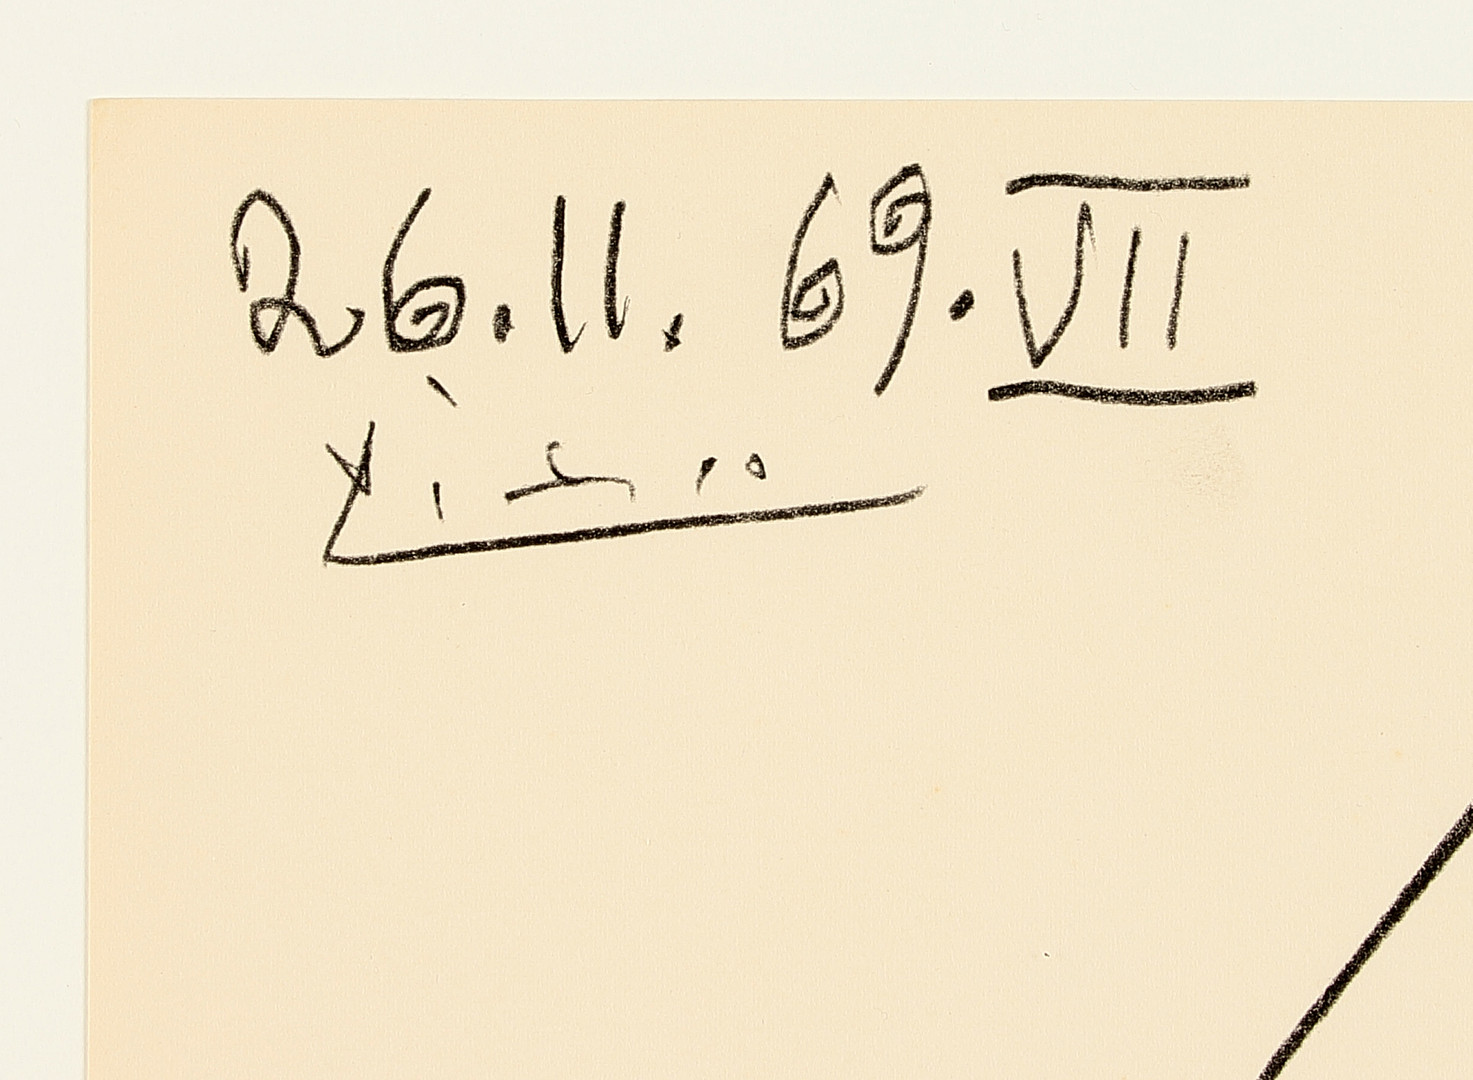 26.11. 69. VII
Picasso